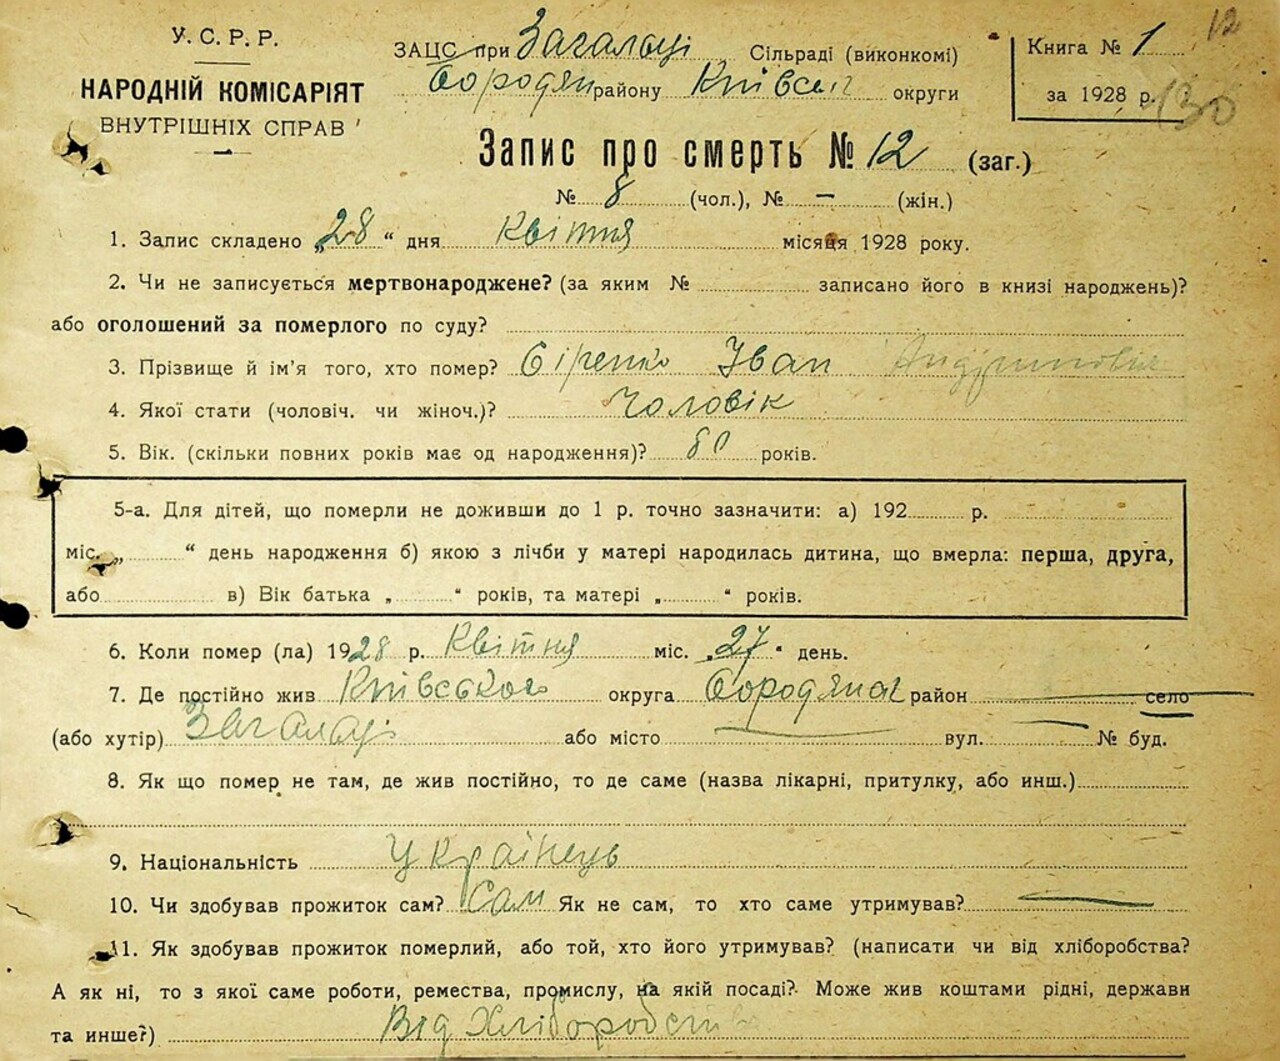 У.С.Р.Р.
НАРОДНІЙ КОМІСАРІЯТ
ВНУТРІШНІХ СПРАВ
ЗАЦС при Загальці Сільраді (виконкомі)
Бородян району Київськ округи
Книга № 1
за 1928 р.
12
130
Запис про смерть № 12 (заг.)
№ 8 (чол.), № — (жін.)
1. Запис складено „28“ дня Квітня місяця 1928 року.
2. Чи не записується мертвонароджене? (за яким № записано його в книзі народжень)?
або оголошений за померлого по суду?
3. Прізвище й ім'я того, хто помер? Сіренко Іван
4. Якої стати (чоловіч. чи жіноч.)? Чоловік
5. Вік. (скільки повних років має од народження)? 80 років.
5-а. Для дітей, що померли не доживши до 1 р. точно зазначити: а) 192 р.
міс. „ “ день народження б) якою з лічби у матері народилась дитина, що вмерла: перша, друга,
або в) Вік батька „ “ років, та матері „ “ років.
6. Коли помер (ла) 1928 р. Квітня міс. „27“ день.
7. Де постійно жив Київського округа Бородянск район — село
(або хутір) Загальці або місто — вул. — № буд.
8. Як що помер не там, де жив постійно, то де саме (назва лікарні, притулку, або инш.)
9. Національність Українець
10. Чи здобував прожиток сам? Сам Як не сам, то хто саме утримував? —
11. Як здобував прожиток померлий, або той, хто його утримував? (написати чи від хліборобства?
А як ні, то з якої саме роботи, ремества, промислу, на якій посаді? Може жив коштами рідні, держави
та инше?) Від Хлібородства